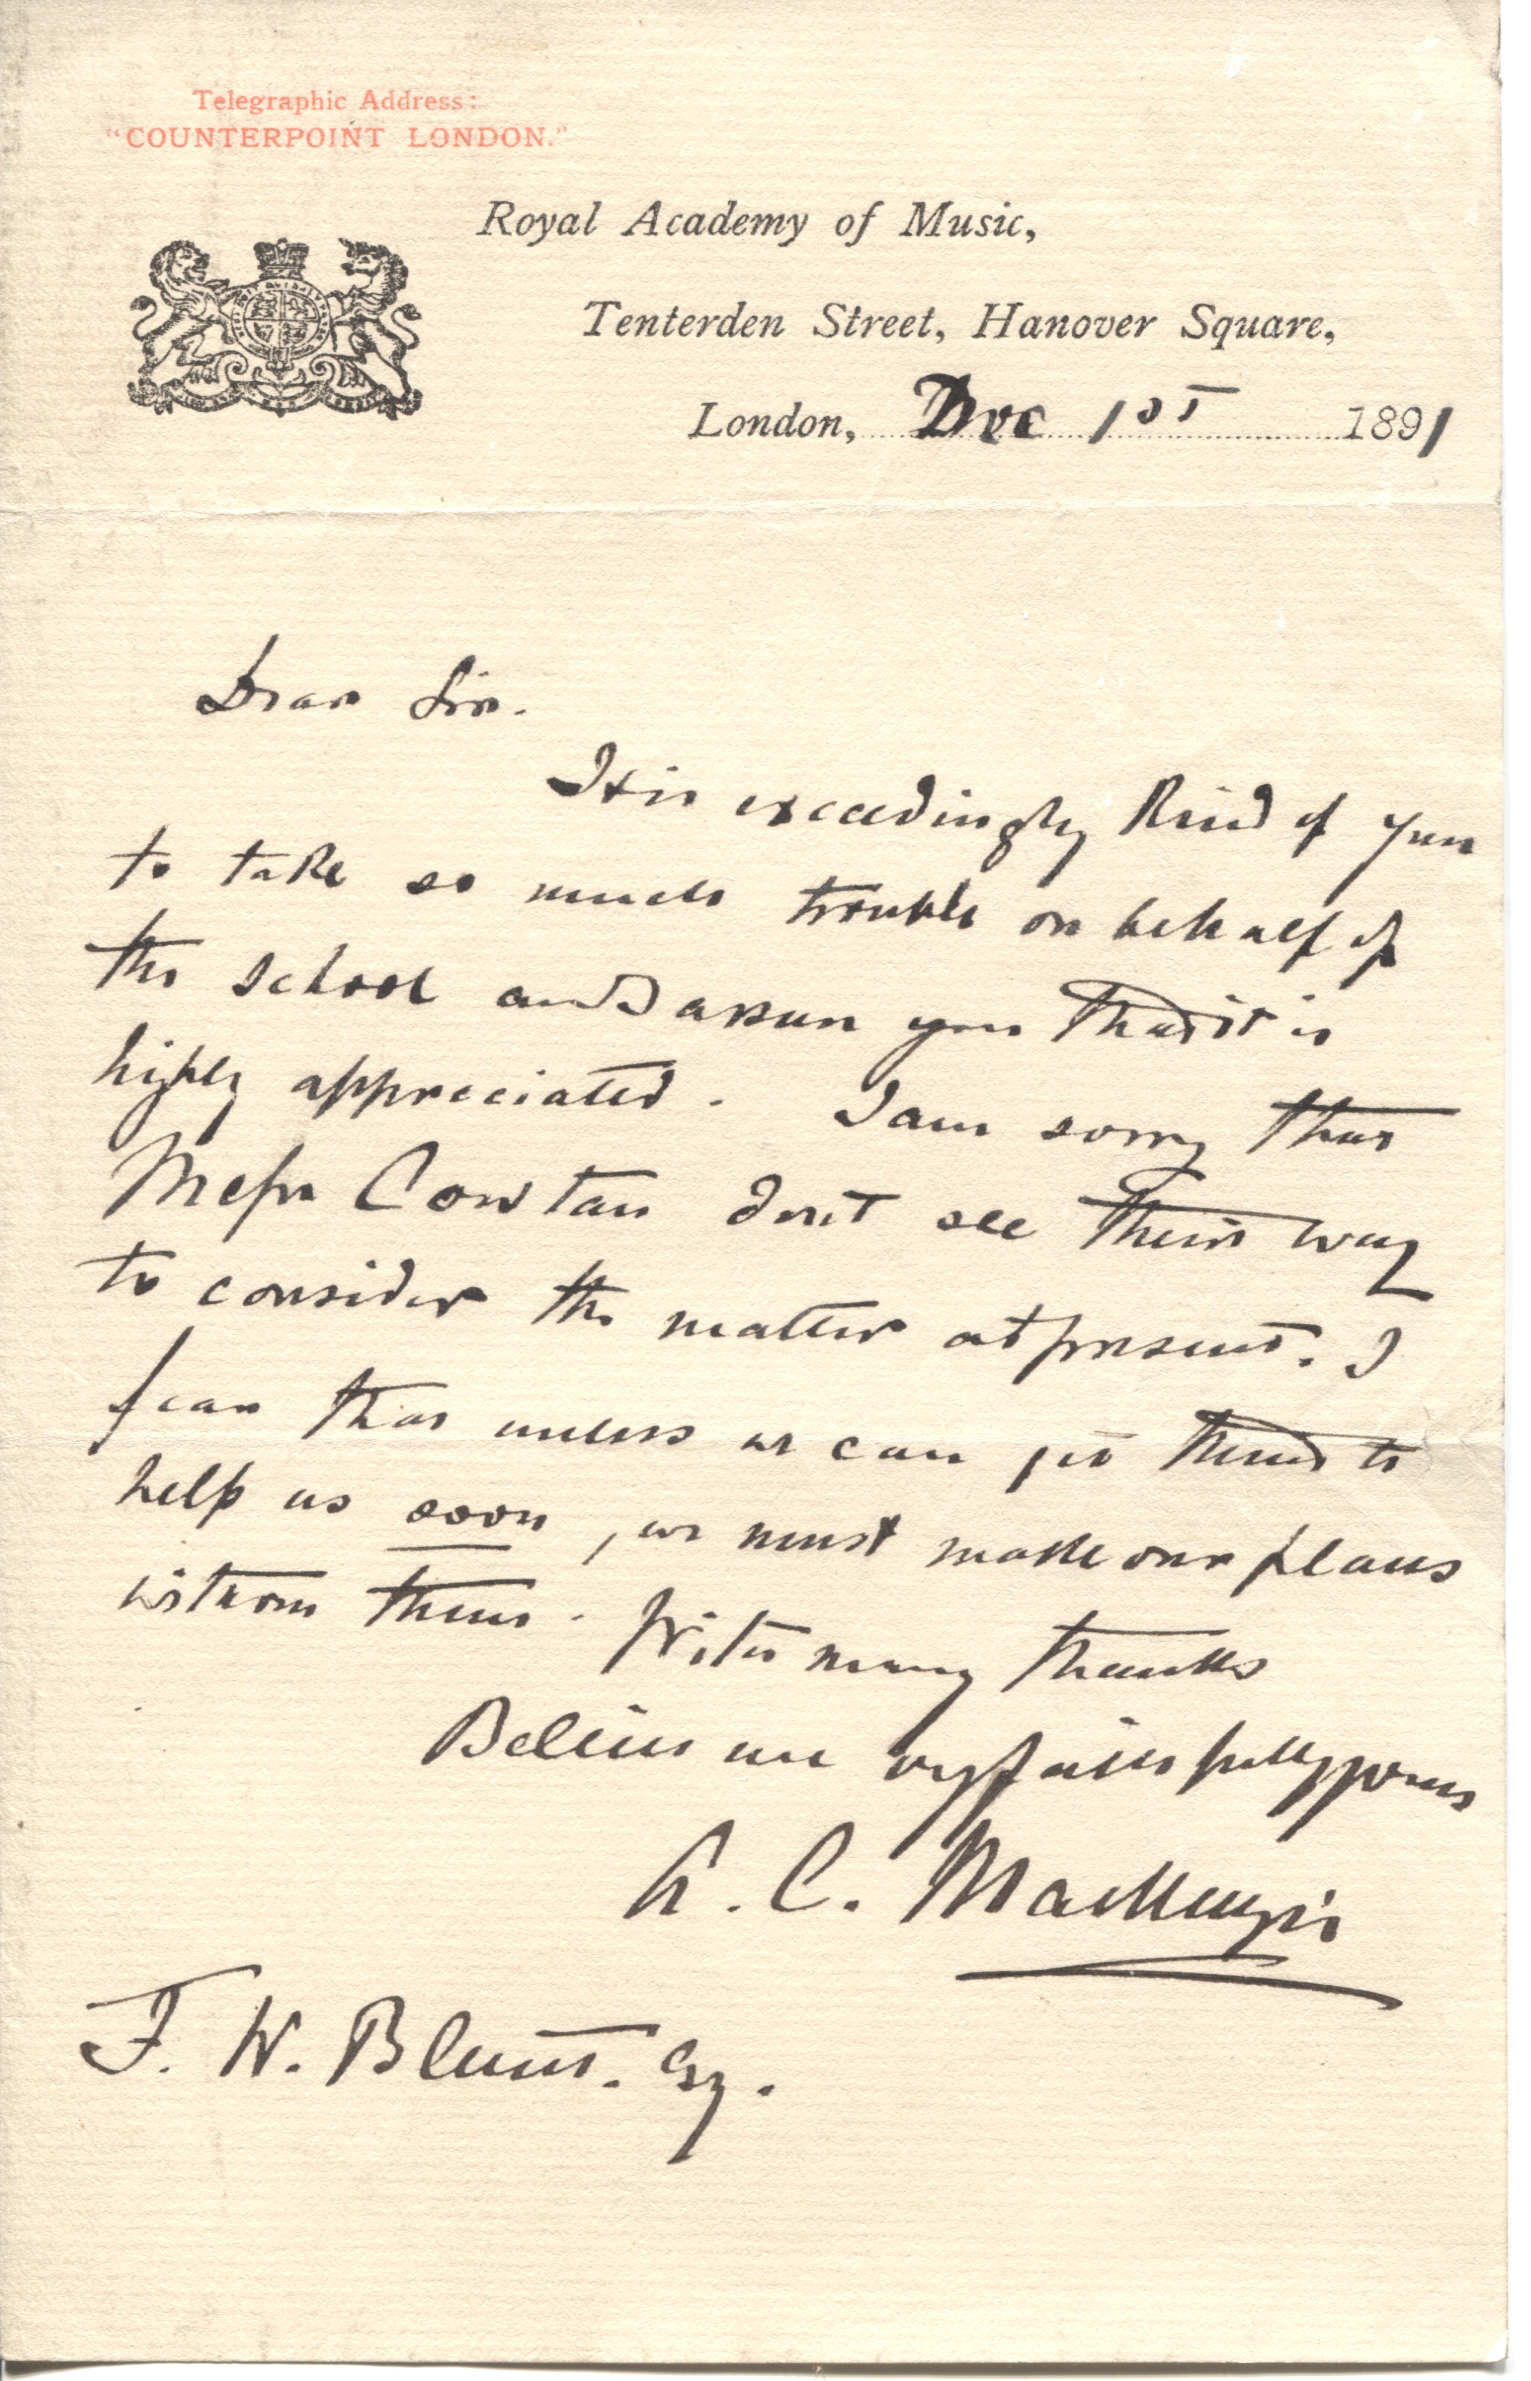 Telegraphic Address:
"COUNTERPOINT LONDON."
Royal Academy of Music,
Tenterden Street, Hanover Square,
London, Dec 1st 1891
Dear Sir.
It is exceedingly kind of you
to take so much trouble on behalf of
the school and I assure you that it is
highly appreciated. I am sorry that
Messrs Cowtan don't see their way
to consider the matter at present. I
fear that unless we can get them to
help us soon, we must make our plans
without them. With many thanks
Believe me very faithfully yours
A. C. Mackenzie
F. W. Blunt. Esq.